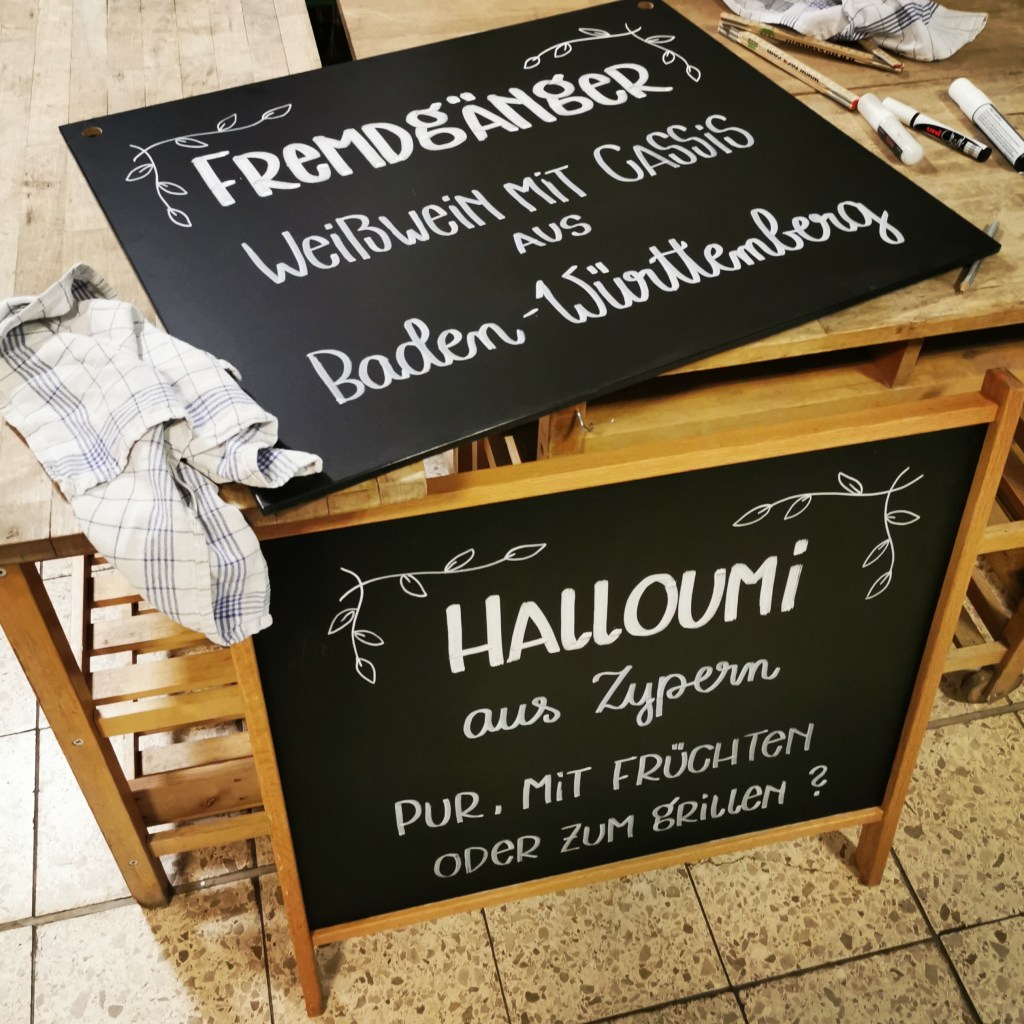 FREMDGÄNGER
WEIßWEIN MIT CASSIS
AUS
Baden-Württemberg
HALLOUMI
aus Zypern
PUR, MIT FRÜCHTEN
ODER ZUM GRILLEN ?
uni